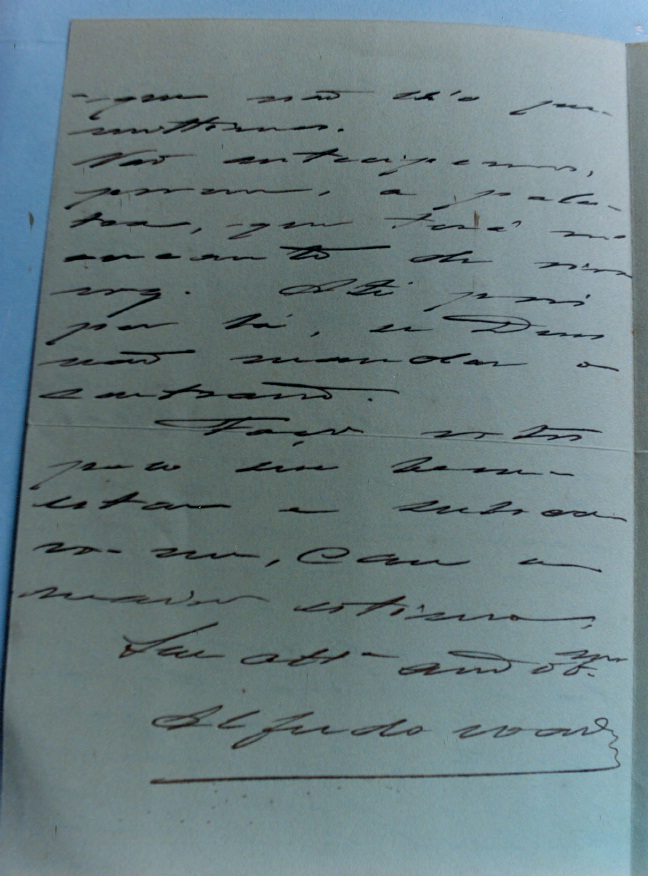 que não lh'o per-
mittimos.
Não antecipemos,
porem, a pales-
tra, que terá no
encanto de viva
voz. Até pois
por lá, se Deus
não mandar o
contrario.
Faço votos
pelo seu bem-
estar e subscre
vo-me, com a
maior estima,
Seu attº amº obº
Alfredo